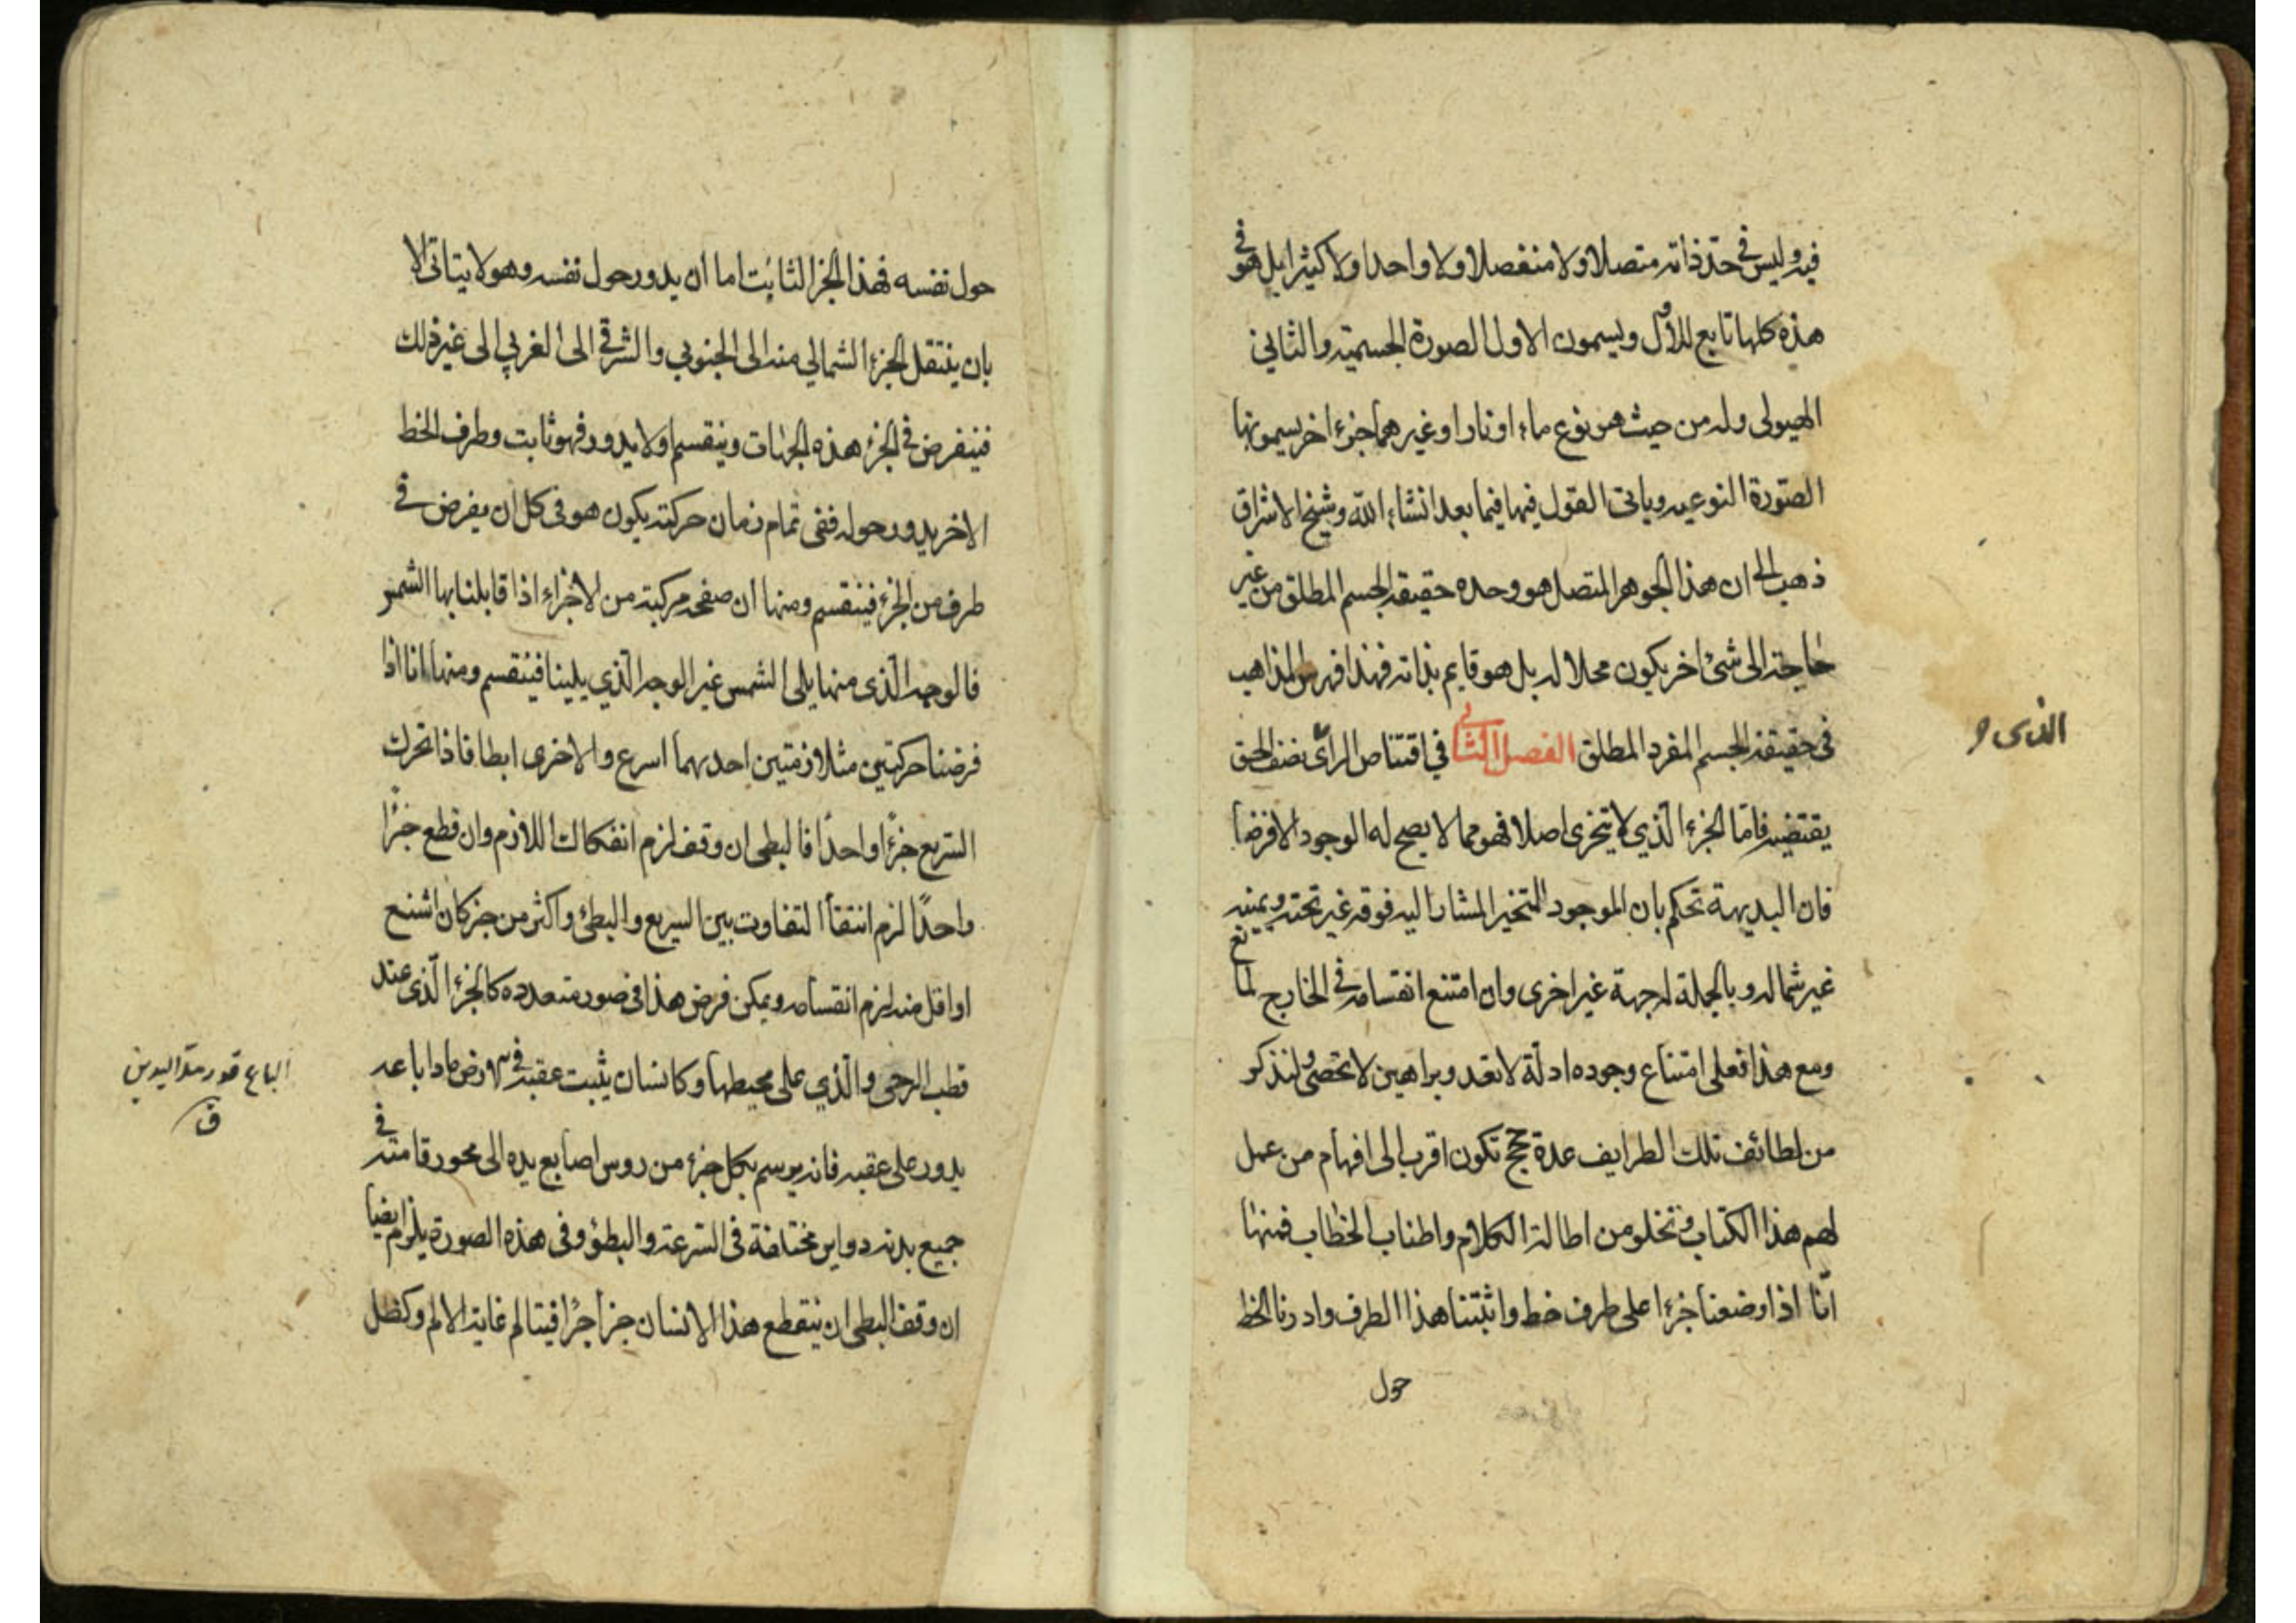 فيه وليس في حدّ ذاته متصلا ولا منفصلا ولا واحدا ولا كثيرا بل هو في
هذه كلها تابع للأول ويسمون الاول الصورة الجسمية والثاني
الهيولى وله من حيث هو نوع ماء او نار او غيرهما جزء اخر يسمونها
الصّورة النوعيه وياتى القول فيها فيما بعد انشاء الله وشيخ الاشراق
ذهب الى ان هذا الجوهر المتصل هو وحده حقيقة الجسم المطلق من غير
حاجة الى شئ اخر يكون محلا له بل هو قايم بذاته فهذا فهرس المذاهب
فى حقيقة الجسم المفرد المطلق الفصل الثاني في اقتناص الرأى نصف الحق
الذى و
يقتضيه فامّا الجزء الّذي لا يتجزى اصلا فهو مما لا يصح له الوجود الا فرضا
فان البديهة تحكم بان الموجود المتحيز المشار اليه فوقه غير تحته ويمينه
غير شماله وبالجملة له جهة غير اخرى وان امتنع انقسامه في الخارج لما نع
ومع هذا فعلى امتناع وجوده ادلّة لا تعد وبراهين لا تحصى ولنذكر
من لطائف تلك الطرايف عدة حجج تكون اقرب الى افهام من عمل
لهم هذا الكتاب وتخلو من اطالة الكلام واطناب الخطاب فمنها
انّا اذا وضعنا جزءا على طرف خط واثبتنا هذا الطرف وادرنا الخط
حول
حول نفسه فهذا الجزء الثابت اما ان يدور حول نفسه وهو لا يتاتى الا
بان ينتقل الجزء الشمالي منه الى الجنوبي والشرقي الى الغربي الى غير ذلك
فينفرض في الجزء هذه الجهات وينقسم اولا يدور فهو ثابت وطرف الخط
الاخر يدور حوله ففى تمام زمان حركته يكون هو فى كل ان يفرض في
طرف من الجزء فينقسم ومنها ان صفحه مركبة من الاجزاء اذا قابلنا بها الشمس
فالوجه الّذى منها يلى الشمس غير الوجه الّذي يلينا فينقسم ومنها انا اذا
فرضنا حركتين متلازمتين احديهما اسرع والاخرى ابطا فاذا تحرك
السّريع جزءًا واحدًا فالبطى ان وقف لزم انفكاك اللازم وان قطع جزءًا
واحدًا لزم انتفأ التفاوت بين السريع والبطئ واكثر من جزء كان اشنع
او اقل منه لزم انقسامه ويمكن فرض هذا فى صور متعدده كالجزء الّذى عند
قطب الرحى والّذي على محيطها وكانسان يثبت عقبه في الارض مادا باعه
الباع قدر مدّ اليدين
ق
يدور على عقبه فانه يرسم بكل جزء من روس اصابع يده الى محور قامته في
جميع بدنه دواير مختلفة فى السّرعة والبطؤ وفى هذه الصورة يلزم ايضا
ان وقف البطى ان ينقطع هذا الانسان جزأ جزًا فيتالم غاية الالم وكظل